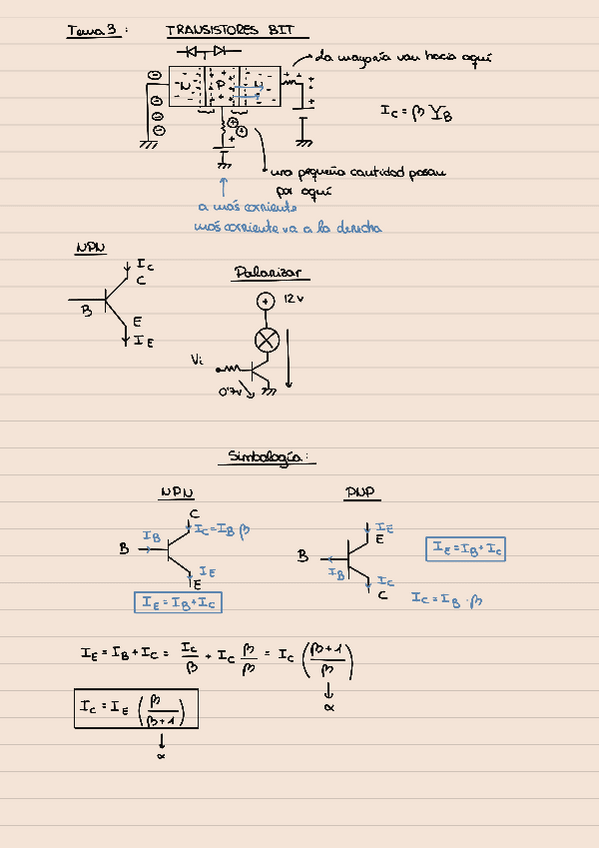 Tema 3: TRANSISTORES BJT
La mayoría van hacia aquí
N P N
I_C = β I_B
una pequeña cantidad pasan
por aquí
a más corriente
más corriente va a la derecha
NPN
I_C
C
B
E
I_E
Polarizar
12v
Vi
0'7v
Simbología:
NPN PNP
C
I_B I_C = I_B β
B
I_E
E
I_E = I_B + I_C
I_E
E
B
I_B
I_C
C
I_E = I_B + I_C
I_C = I_B · β
I_E = I_B + I_C = I_C/β + I_C β/β = I_C (β+1/β)
α
I_C = I_E (β/β+1)
α